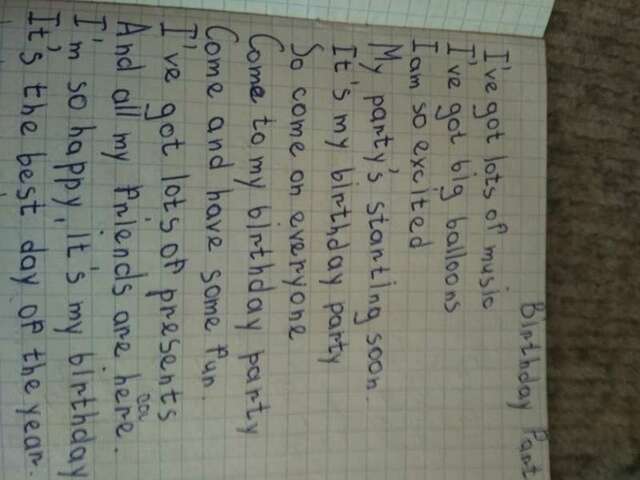 Birthday Part
I've got lots of music
I've got big balloons
I am so excited
My party's starting soon.
It's my birthday party
So come on everyone
Come to my birthday party
Come and have some fun.
I've got lots of presents
And all my friends are here.
I'm so happy, It's my birthday
It's the best day of the year.